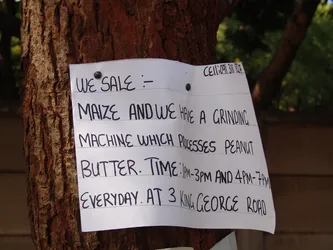 WE SALE :-
MAIZE AND WE HAVE A GRINDING
MACHINE WHICH PROCESSES PEANUT
BUTTER. TIME: -3PM AND 4PM-7PM
EVERYDAY. AT 3 KING GEORGE ROAD